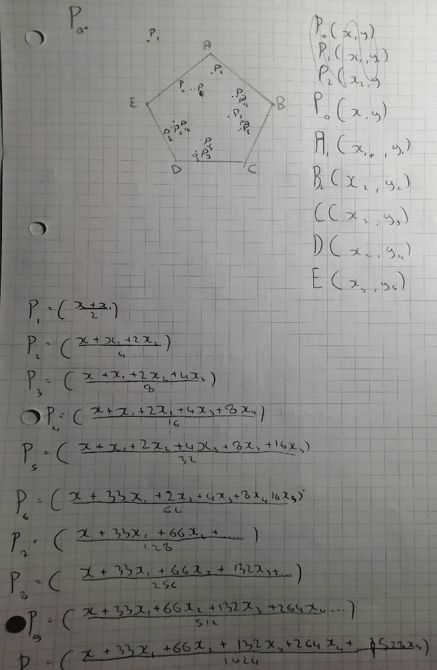 P₀.
.P₁
A
P₂
E
B
D
C
P₀(x,y)
P₁(x,y)
P₂(x₂,y
P₀(x,y)
A₁(x₁,y₁)
B₂(x₂,y₂)
C(x₃,y₃)
D(x₄,y₄)
E(x₅,y₅)
P₁=(x+x₁/2)
P₂=(x+x₁+2x₂/4)
P₃=(x+x₁+2x₂+4x₃/8)
P₄=(x+x₁+2x₂+4x₃+8x₄/16)
P₅=(x+x₁+2x₂+4x₃+8x₄+16x₅/32)
P₆=(x+33x₁+2x₂+4x₃+8x₄16x₅/64)
P₇=(x+33x₁+66x₂+..../128)
P₈=(x+33x₁+66x₂+132x₃+.../256)
P₉=(x+33x₁+66x₂+132x₃+264x₄.../512)
P=(x+33x₁+66x₂+132x₃+264x₄+528x₅/1024)